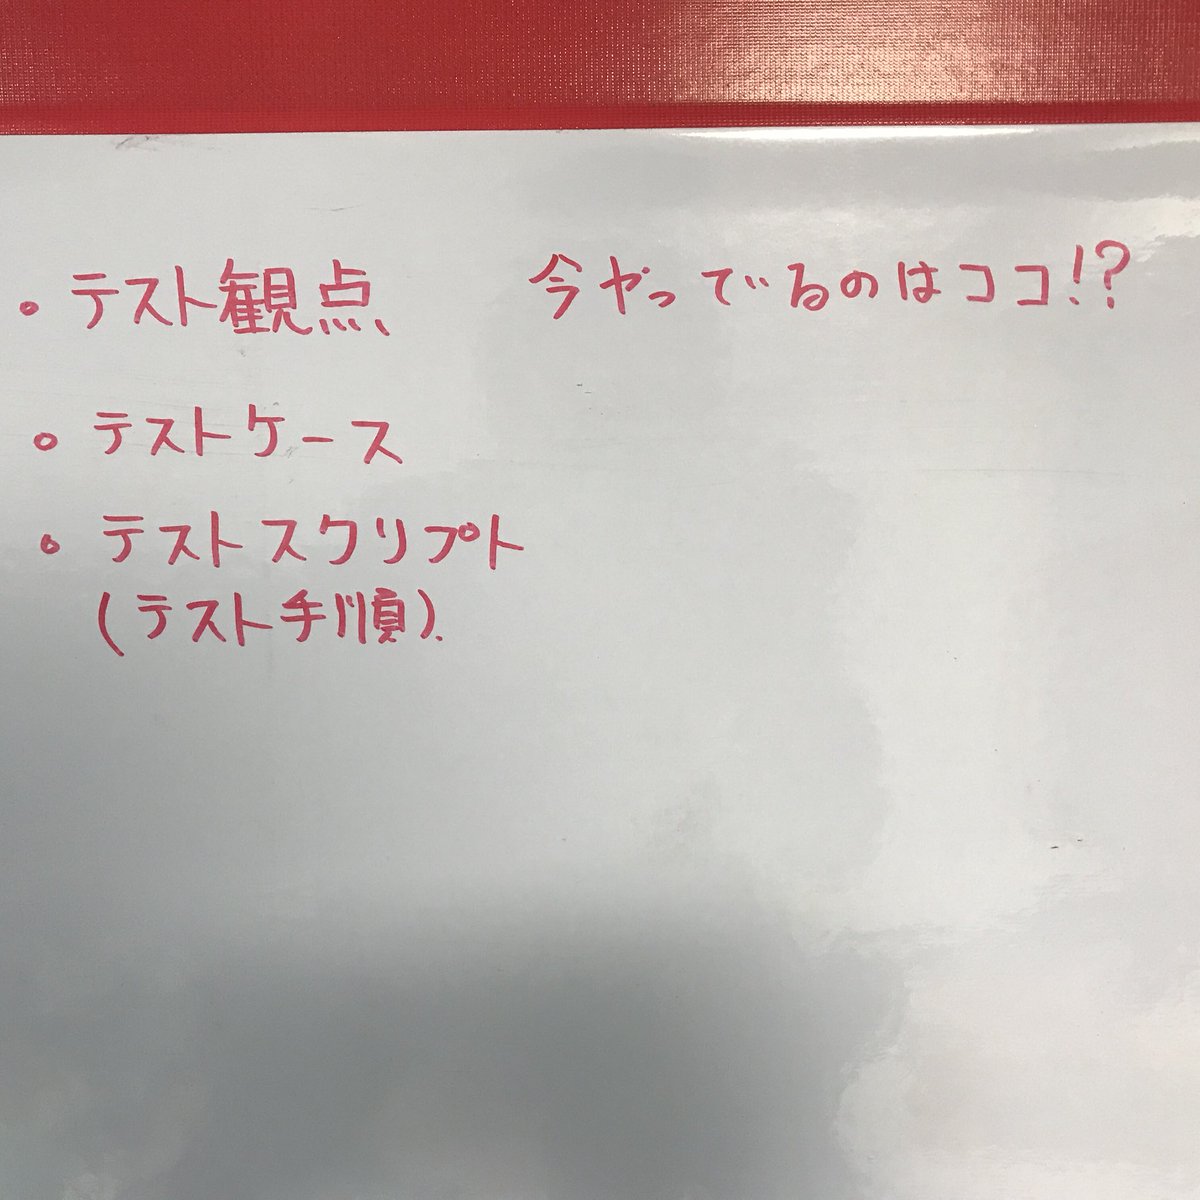 ・テスト観点 今やっているのはココ!?
・テストケース
・テストスクリプト
(テスト手順).